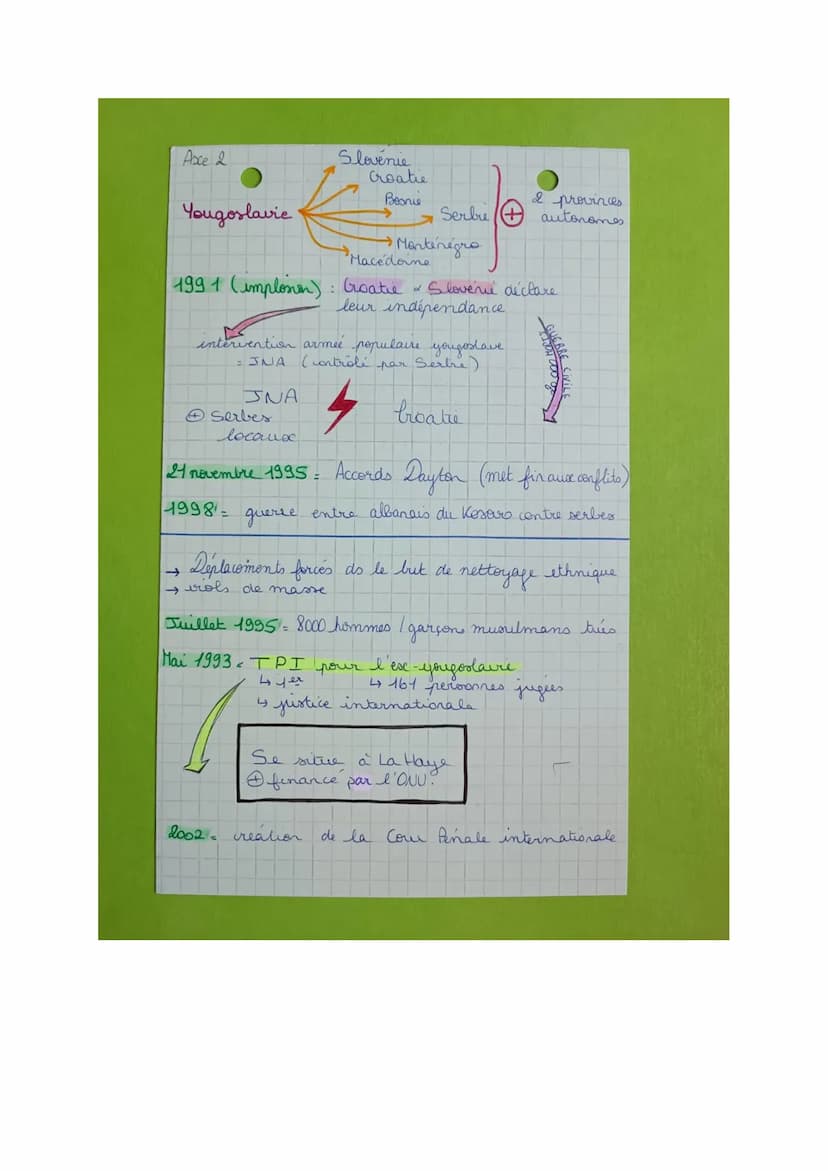 Axe 2
Slovénie
Croatie
Bosnie
Yougoslavie
Serbie
⊕
2 provinces
autonomes
Monténégro
Macédoine
1991 (implosion) : Croatie & Slovénie déclare
leur indépendance
intervention armée populaire yougoslave
= JNA (contrôlé par Serbie)
GUERRE CIVILE
JNA
⊕ Serbes
locaux
Croatie
21 novembre 1995 = Accords Dayton (met fin aux conflits)
1998 = guerre entre albanais du Kosovo contre serbes
→ Déplacements forcés ds le but de nettoyage ethnique
→ viols de masse
Juillet 1995 = 8000 hommes / garçons musulmans tués
Mai 1993 = TPI pour l'ex-yougoslavie
↳ 1er ↳ 161 personnes jugées
↳ justice internationale
Se situe à La Haye
⊕ financé par l'ONU.
2002 = création de la Cour Pénale internationale